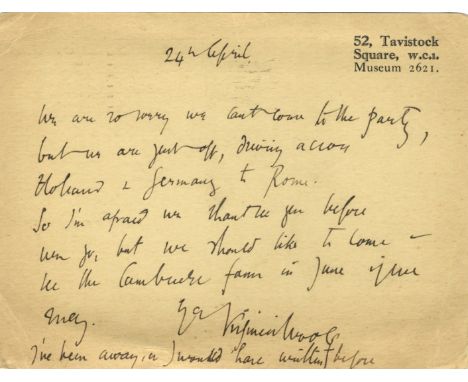 52, Tavistock
Square, W.C.1.
Museum 2621.
24th April.
We are so sorry we cant come to the party,
but we are just off, driving across
Holland & Germany to Rome.
So I'm afraid we shant see you before
we go, but we should like to come &
see the Cambridge farm in June if we
may.
Virginia Woolf
I've been away, or I would have written before